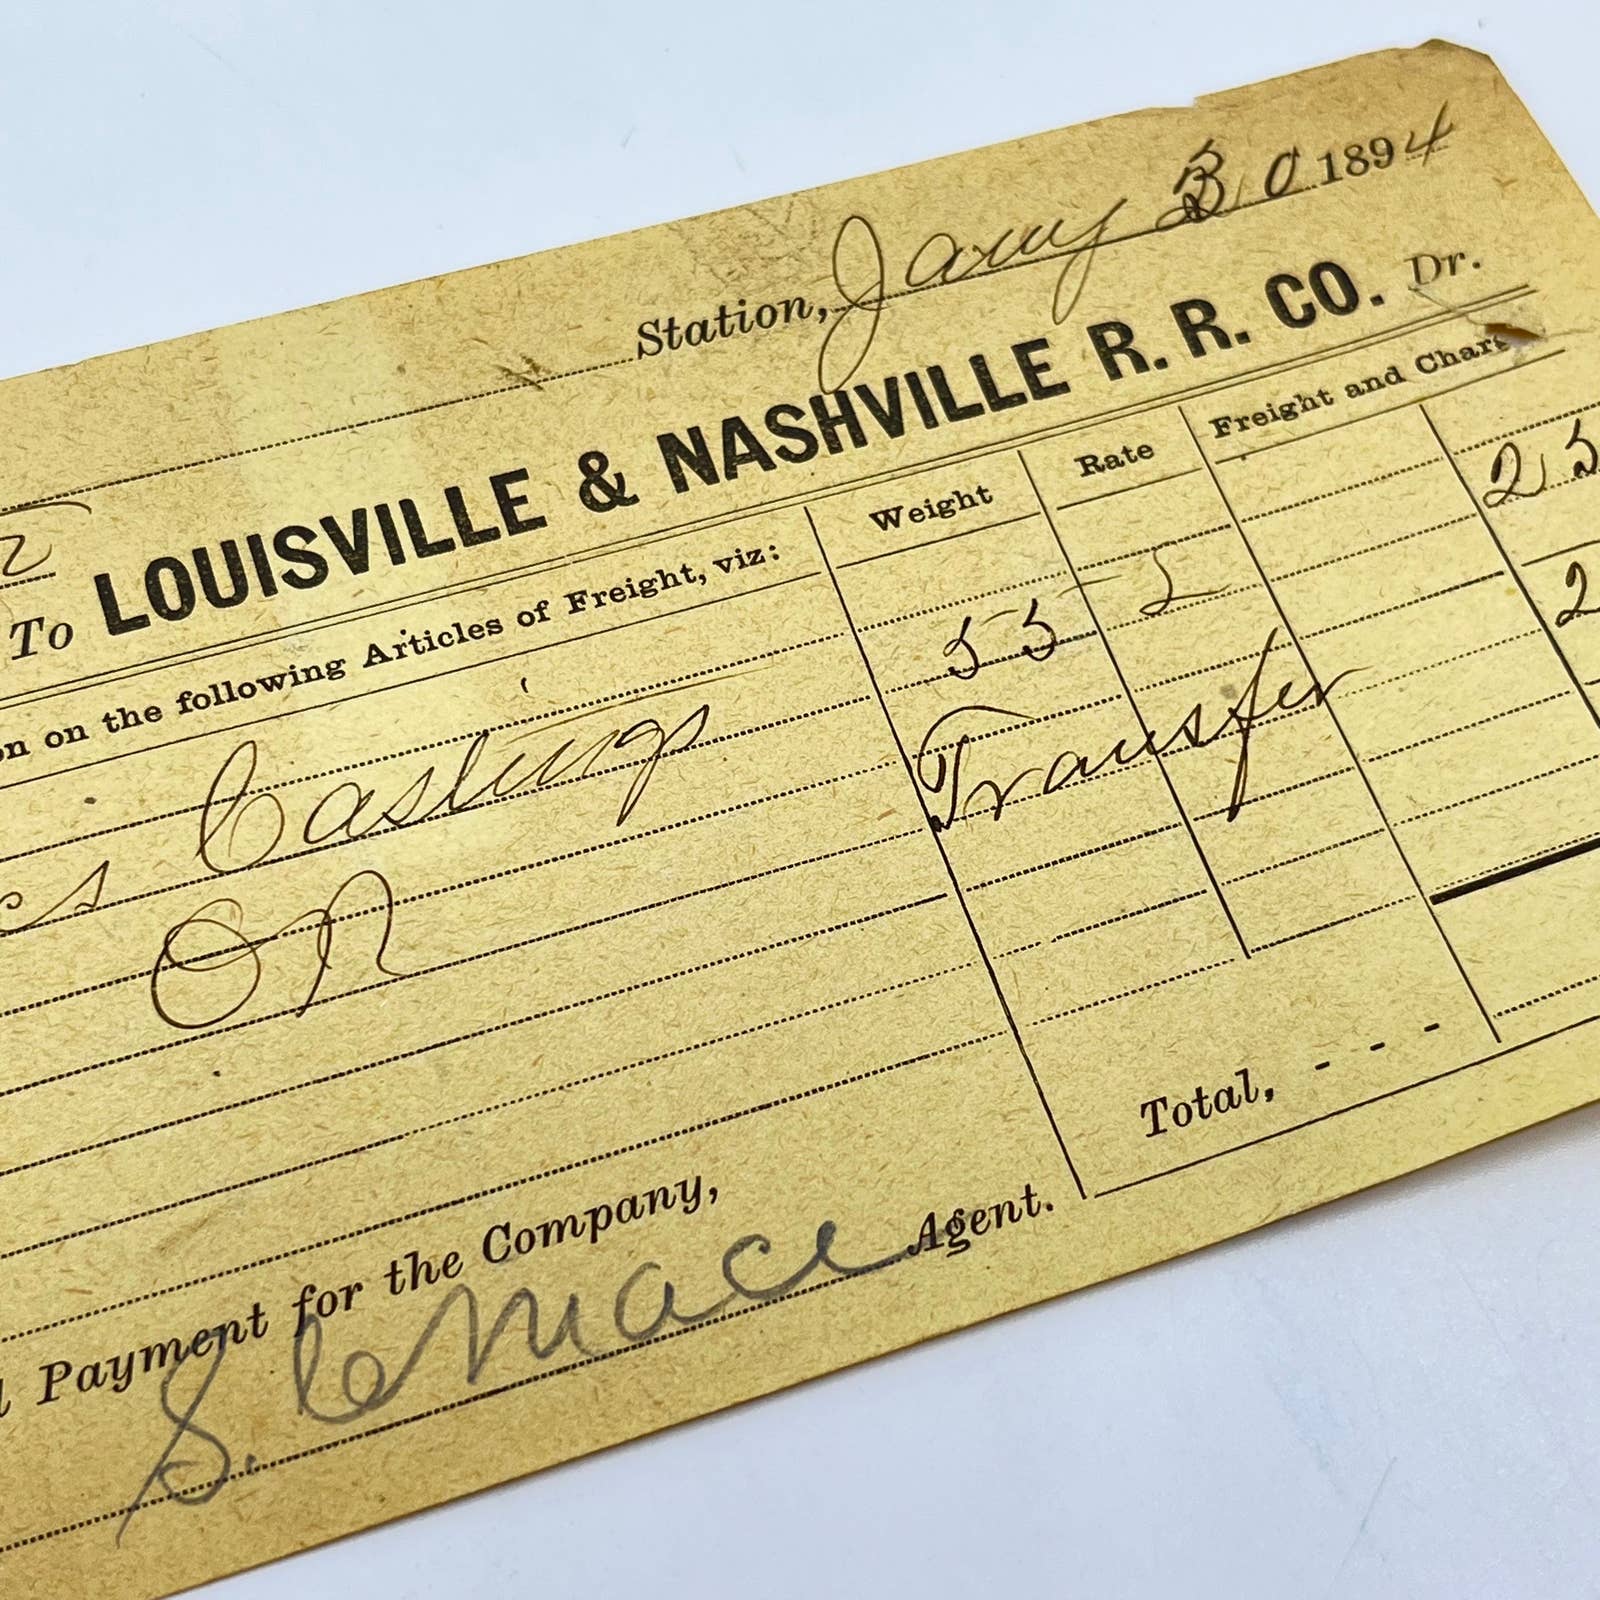 Station, Jany 30 1894
To LOUISVILLE & NASHVILLE R. R. CO. Dr.
on on the following Articles of Freight, viz: Weight Rate Freight and Charg
Castings 55 25
Transfer 2
ON
Total, - - -
Payment for the Company,
Agent.